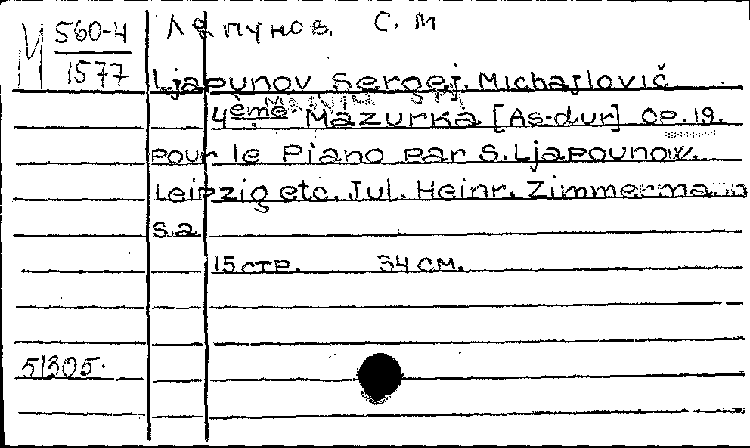 М 560-4
1577
Ляпунов. С. М
Ljapunov Sergej. Michajlovič
4ème Mazurka [As-dur] Op.19.
pour le Piano par S. Ljapounow.
Leipzig etc. Jul. Heinr. Zimmermann
s.a
15 стр. 34 см.
51305.